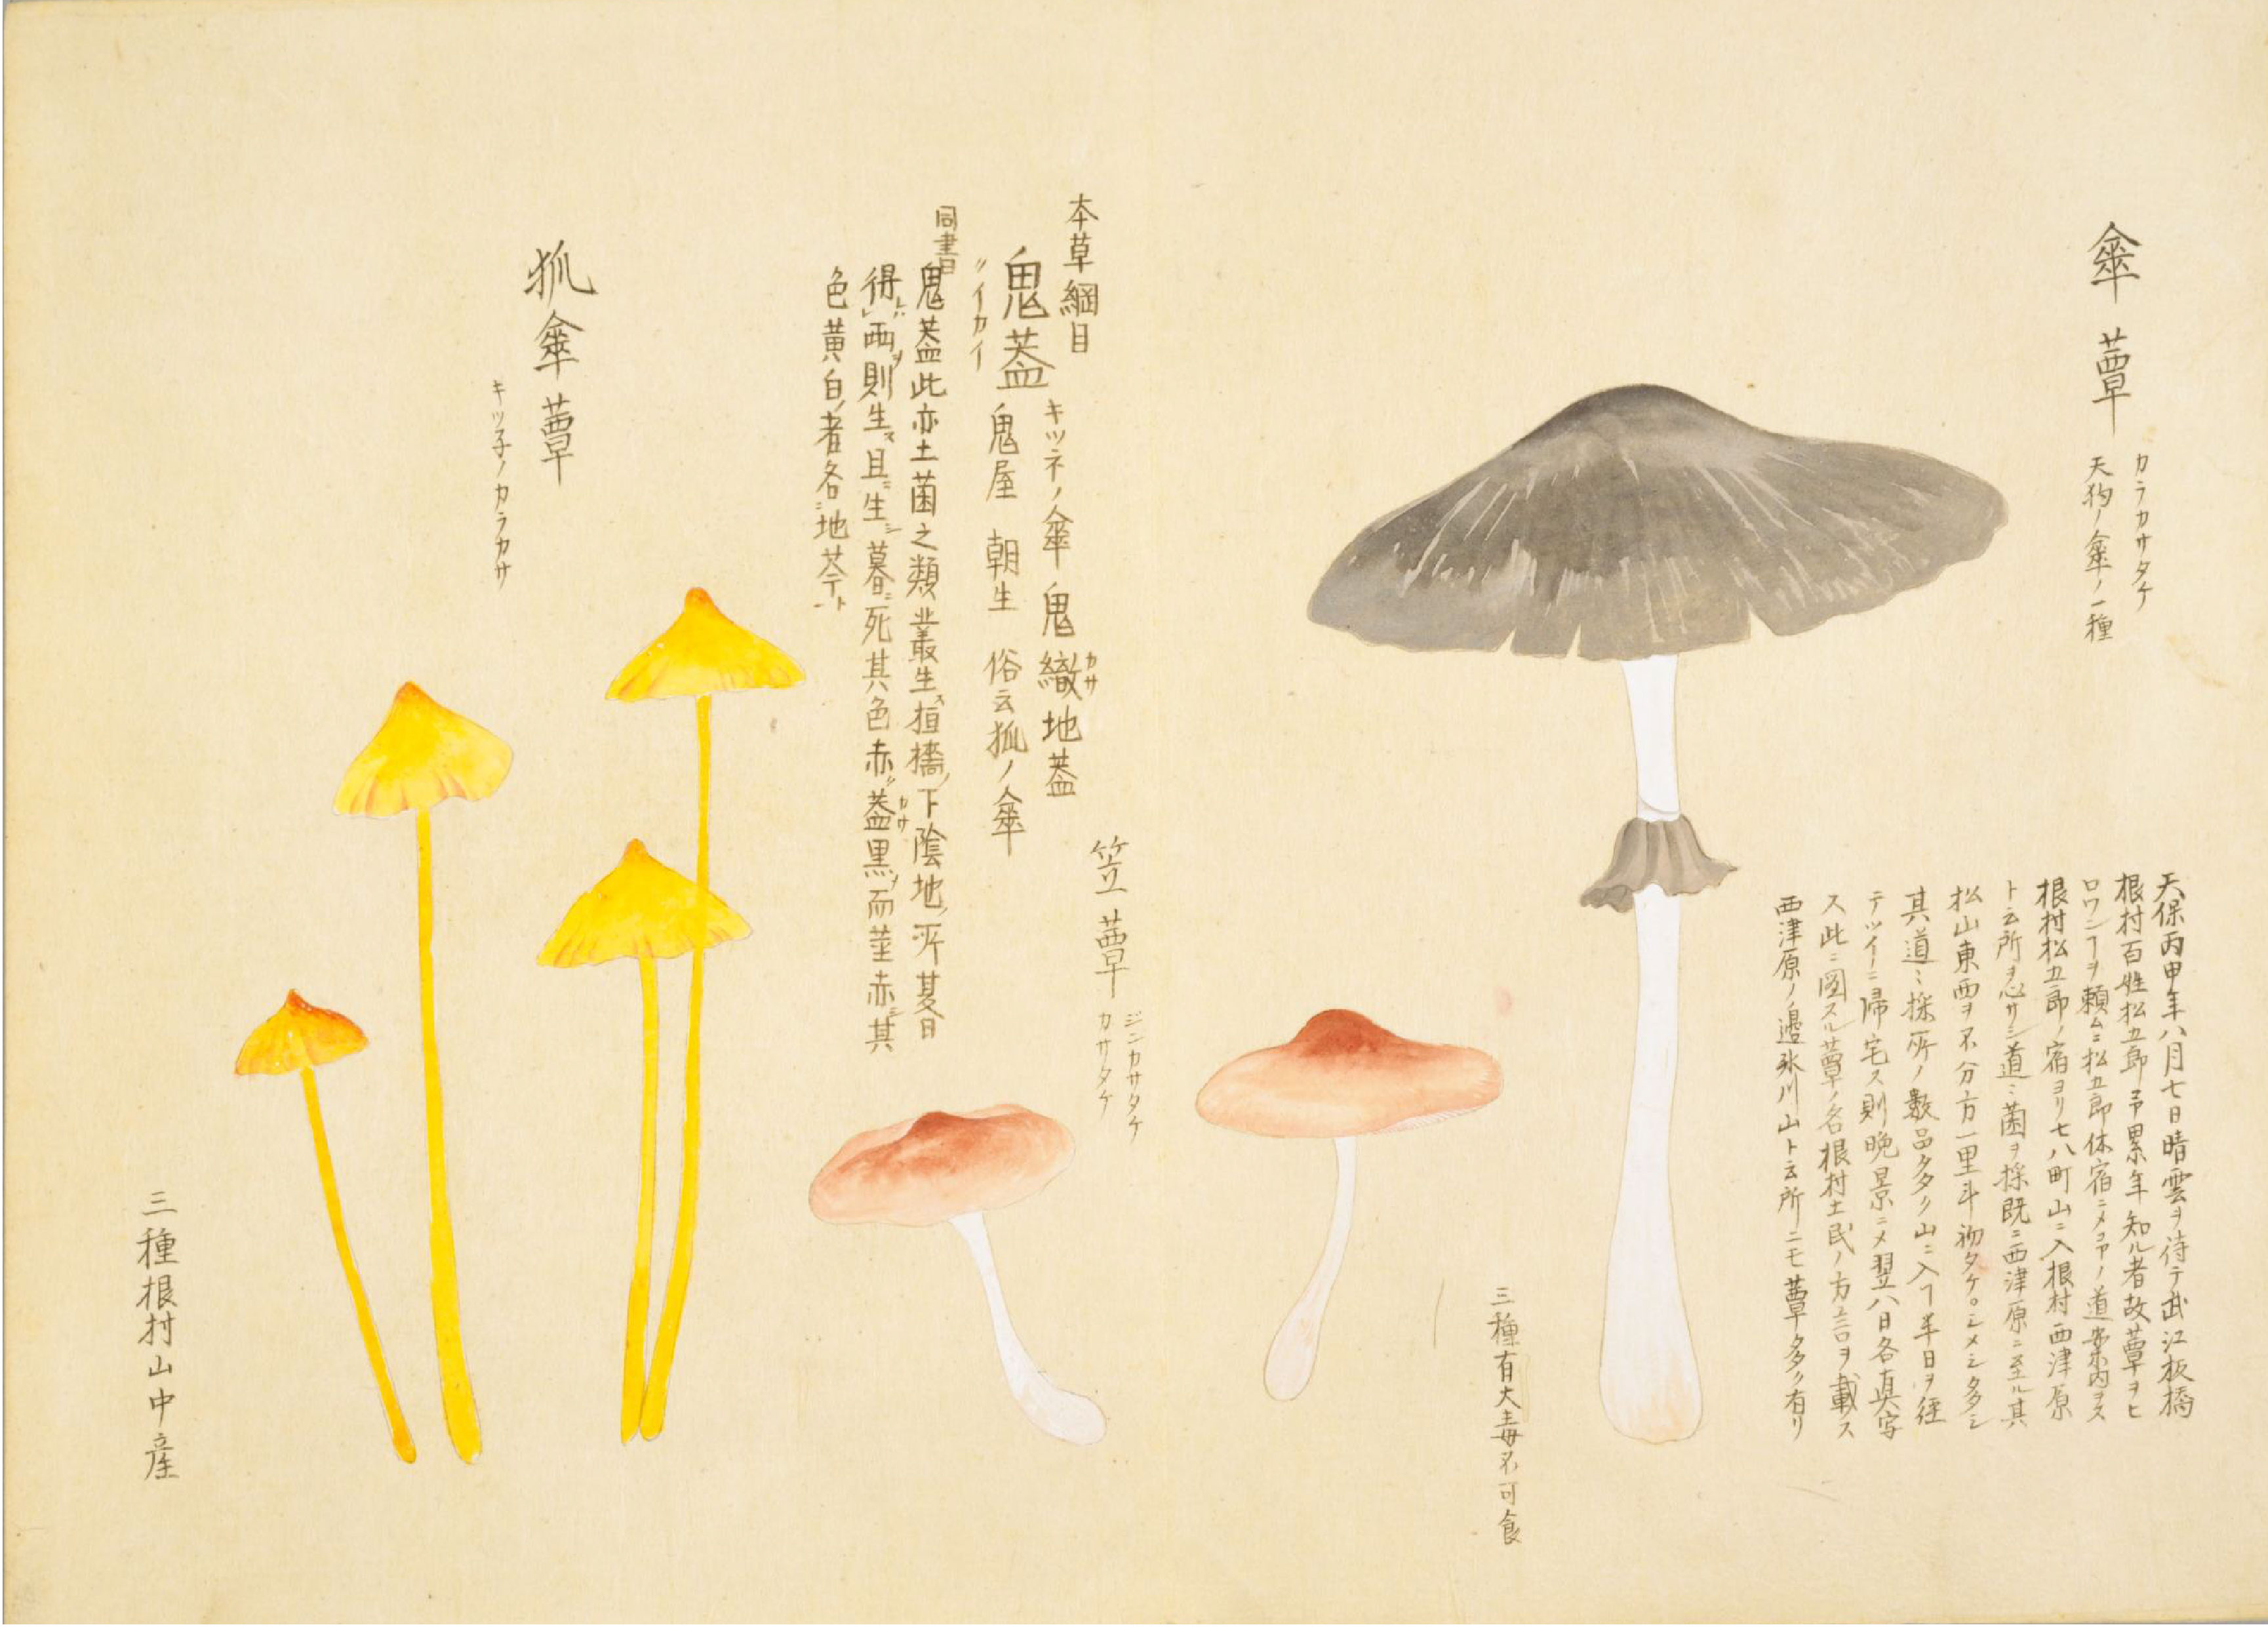 傘蕈
カラカサタケ
天狗ノ傘ノ一種
天保丙申年八月七日晴雲ヲ待テ武江板橋
根村百姓松五郎予累年知ル者故蕈ヲヒ
ロワンヿヲ頼ムニ松五郎休宿ニメ予ノ道案内ヲス
根村松五郎ノ宿ヨリ七八町山ニ入根村西津原
ト云所ヲ心サシ道ミ菌ヲ採既ニ西津原ニ至ル其
松山東西ヲ不分方一里斗初タケ。シメシ多シ
其道ミ採所ノ数品多クリ山ニ入ヿ半日ヲ経
テツイニ帰宅ス則晩景ニメ翌八日各真写
ス此ニ図スル蕈ノ名根村土民ノ方言ヲ載ス
西津原ノ邊氷川山ト云所ニモ蕈多ク有リ
三種有大毒不可食
笠蕈
ジンカサタケ
カサタケ
本草綱目
鬼葢
キツネノ傘 鬼繖地葢
カサ
〃イカイ
鬼屋 朝生 俗云狐ノ傘
同書曰
鬼葢此亦土菌之類叢生ス垣墻ノ下陰地ノ所夏日
得ハ雨ヲ則生ス且ニ生シ暮ニ死其色赤葢黒ク而莖赤シ其
カサ
色黄白ノ者各ニ地苓ト
狐傘蕈
キツ子ノカラカサ
三種根村山中産